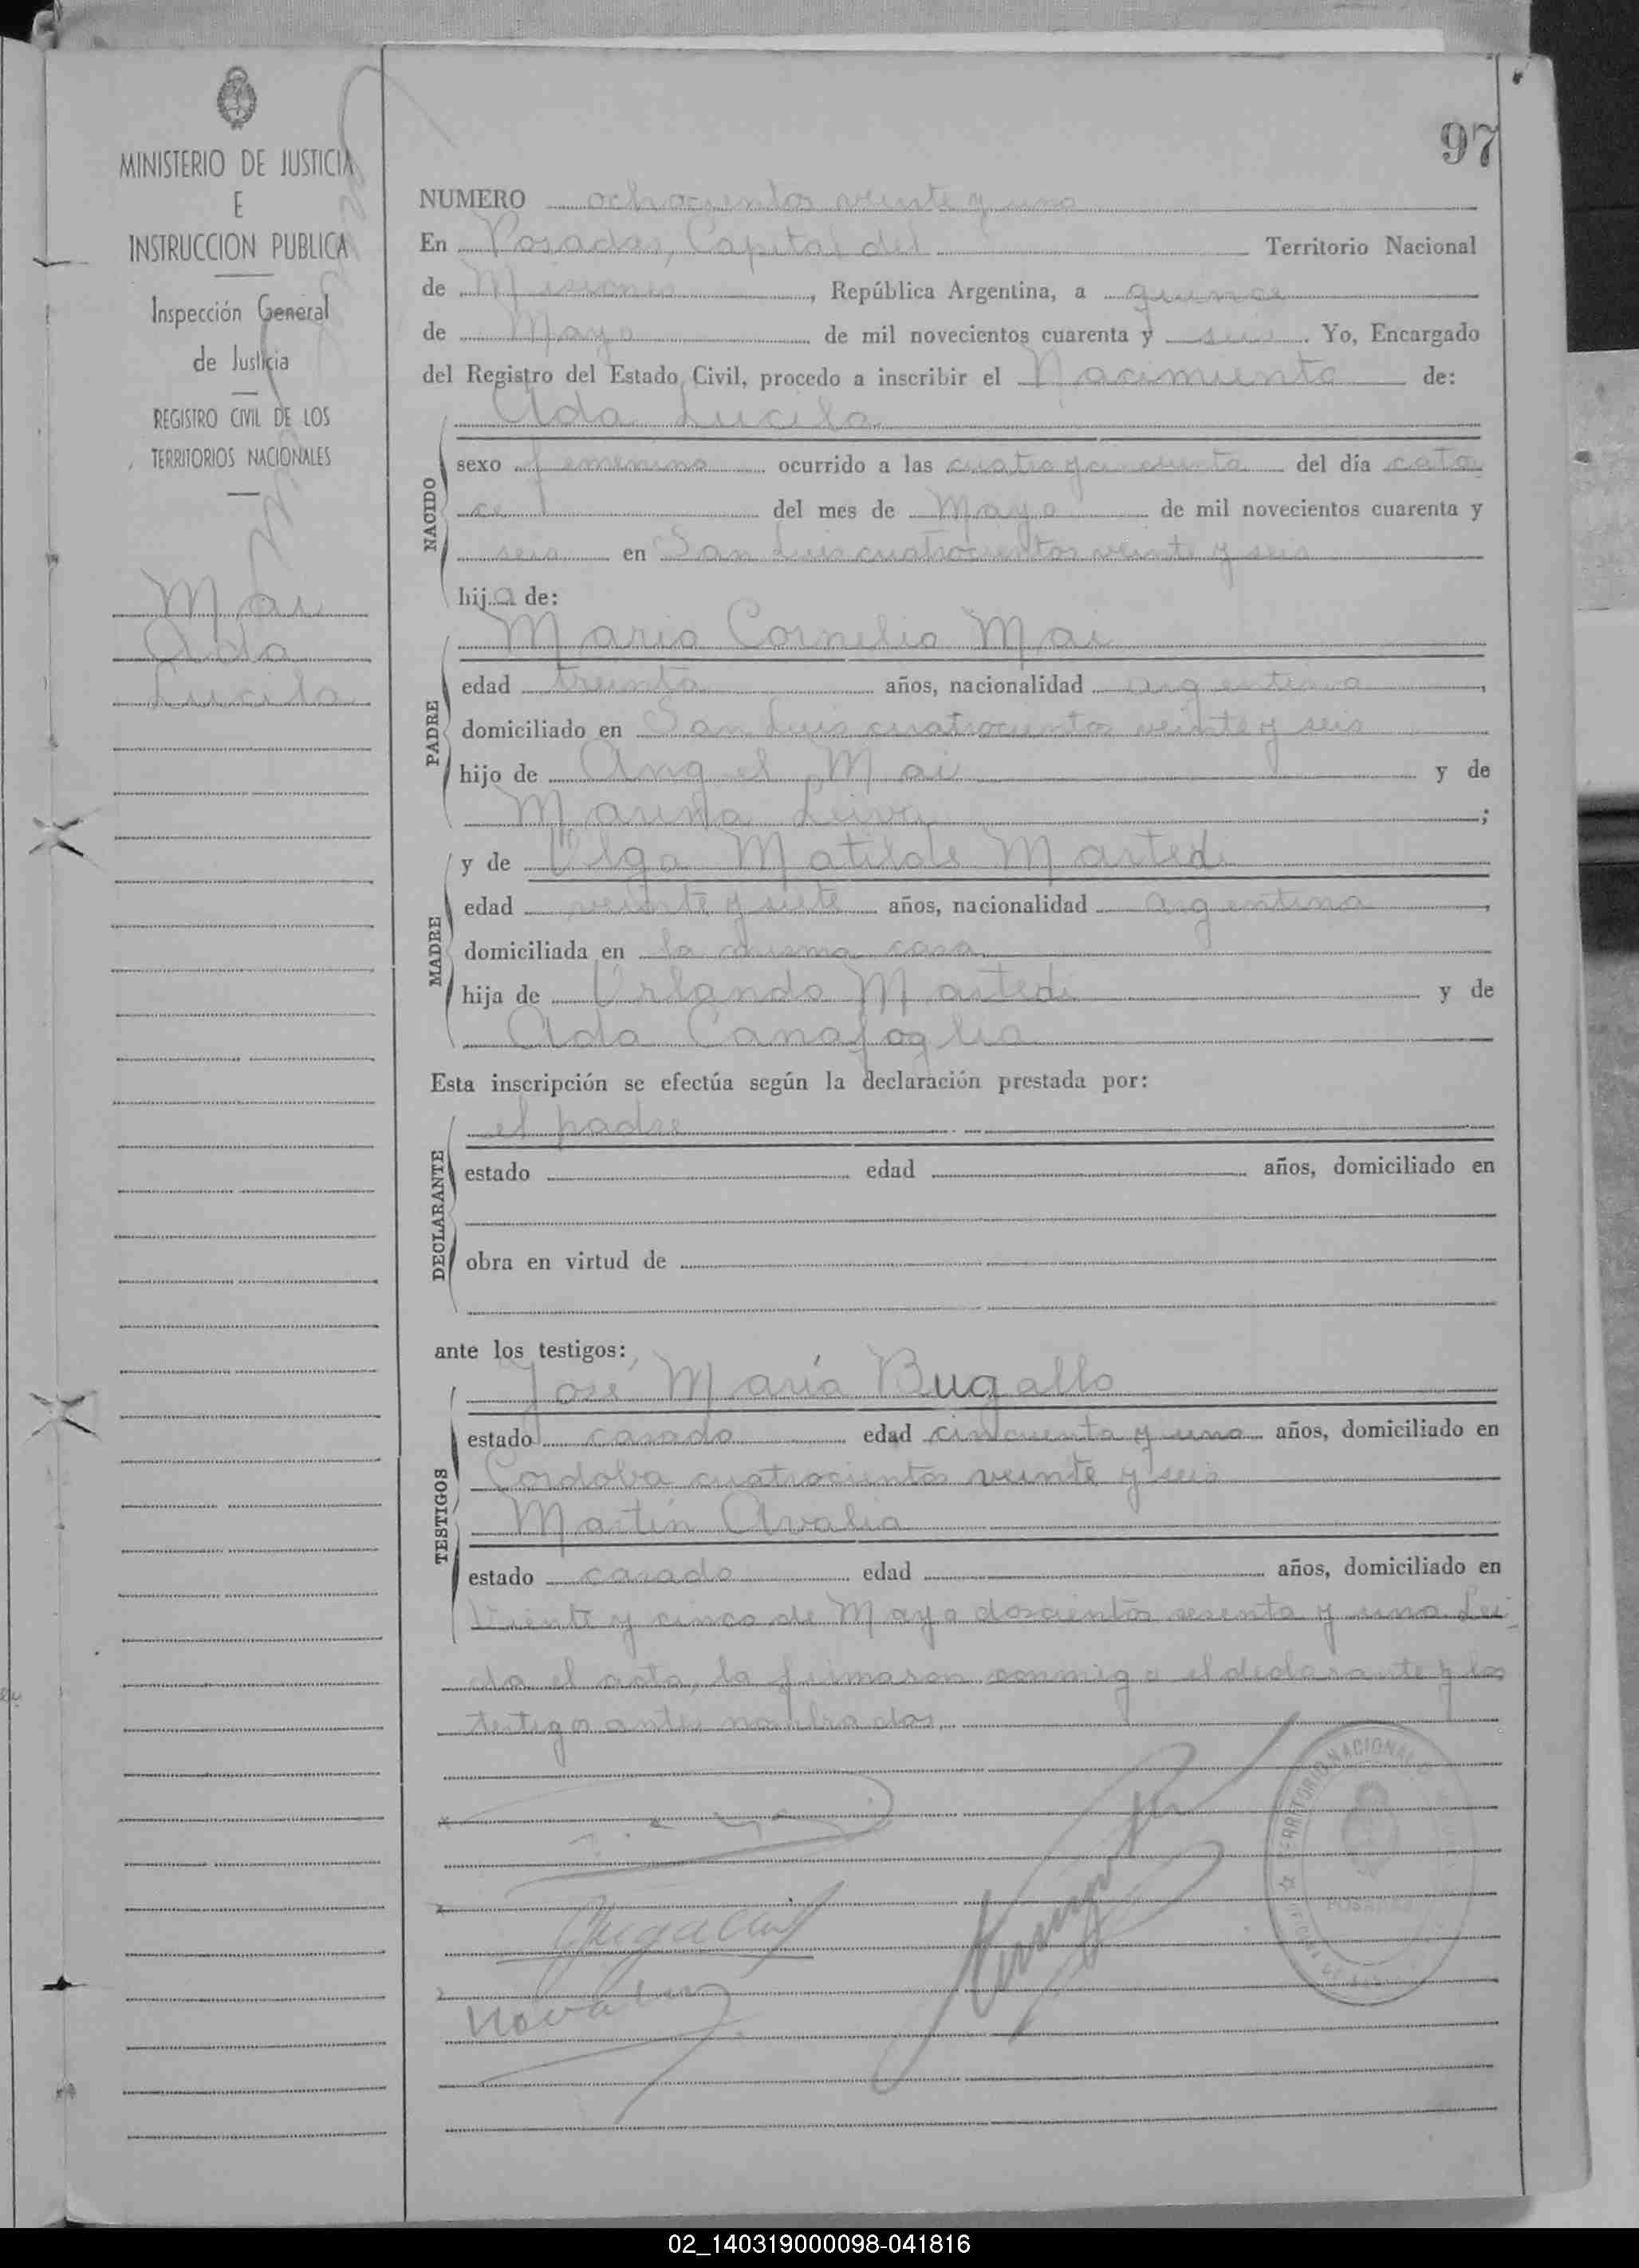 97
MINISTERIO DE JUSTICIA
E
INSTRUCCION PUBLICA
Inspección General
de Justicia
REGISTRO CIVIL DE LOS
TERRITORIOS NACIONALES
Mai
Ada
Lucila
NUMERO ochocientos veinte y uno
En Posadas, Capital del Territorio Nacional
de Misiones, República Argentina, a quince
de Mayo de mil novecientos cuarenta y seis. Yo, Encargado
del Registro del Estado Civil, procedo a inscribir el Nacimiento de:
Ada Lucila
NACIDO
sexo femenino ocurrido a las cuatro y cincuenta del día cator
ce del mes de Mayo de mil novecientos cuarenta y
seis en San Luis cuatrocientos veinte y seis
hija de:
Mario Cornelio Mai
PADRE
edad treinta años, nacionalidad argentino,
domiciliado en San Luis cuatrocientos veinte y seis
hijo de Angel Mai y de
Leiva;
y de Olga Matilde Martedi
MADRE
edad veinte y siete años, nacionalidad argentina,
domiciliada en la misma casa
hija de Orlando Martedi y de
Ada Canafoglia
Esta inscripción se efectúa según la declaración prestada por:
el padre
DECLARANTE
estado edad años, domiciliado en
obra en virtud de
ante los testigos:
José María Bugallo
TESTIGOS
estado casado edad cincuenta y uno años, domiciliado en
Cordoba cuatrocientos veinte y seis
Martín Avalia
estado casado edad años, domiciliado en
Viente y cinco de Mayo doscientos sesenta y uno Lei
da el acta, la firmaron conmigo el declarante y los
testigo antes nombrados.
TERRITORIO NACIONAL
POSADAS
02_140319000098-041816